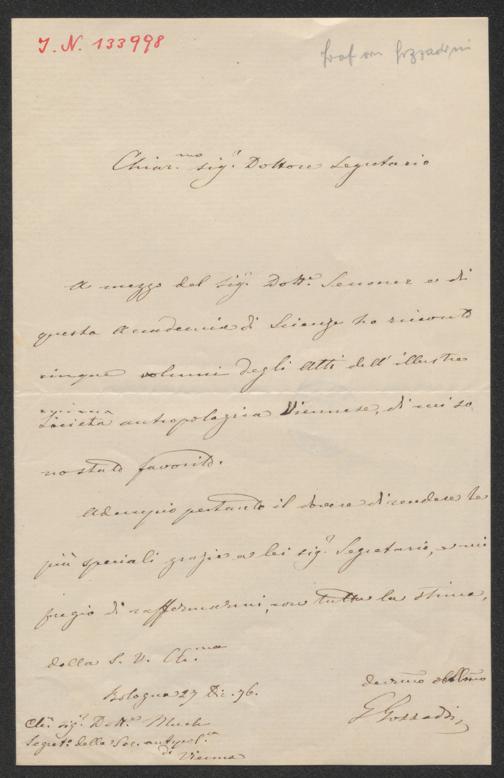 J. N. 133998
Prof von Gozzadini
Chiar.mo sig.r Dottore Segretario
A mezzo del Sig.r Dott.r Senoner e di
questa Accademia di Scienze ho ricevuto
cinque volumi degli Atti dell'illustre
Società antropologica Viennese, di cui so
no stato favorito.
Adempio pertanto il dovere di rendere le
più speciali grazie a lei sig.r Segretario, e mi
pregio di raffermarmi, con tutta la stima,
della S. V. Ch.ma
Bologna 27 Dic. 76.
devmo obblmo
G Gozzadini
Ch. sig.r Dott.r Much
Segret.o della Soc. antropol.a
di Vienna